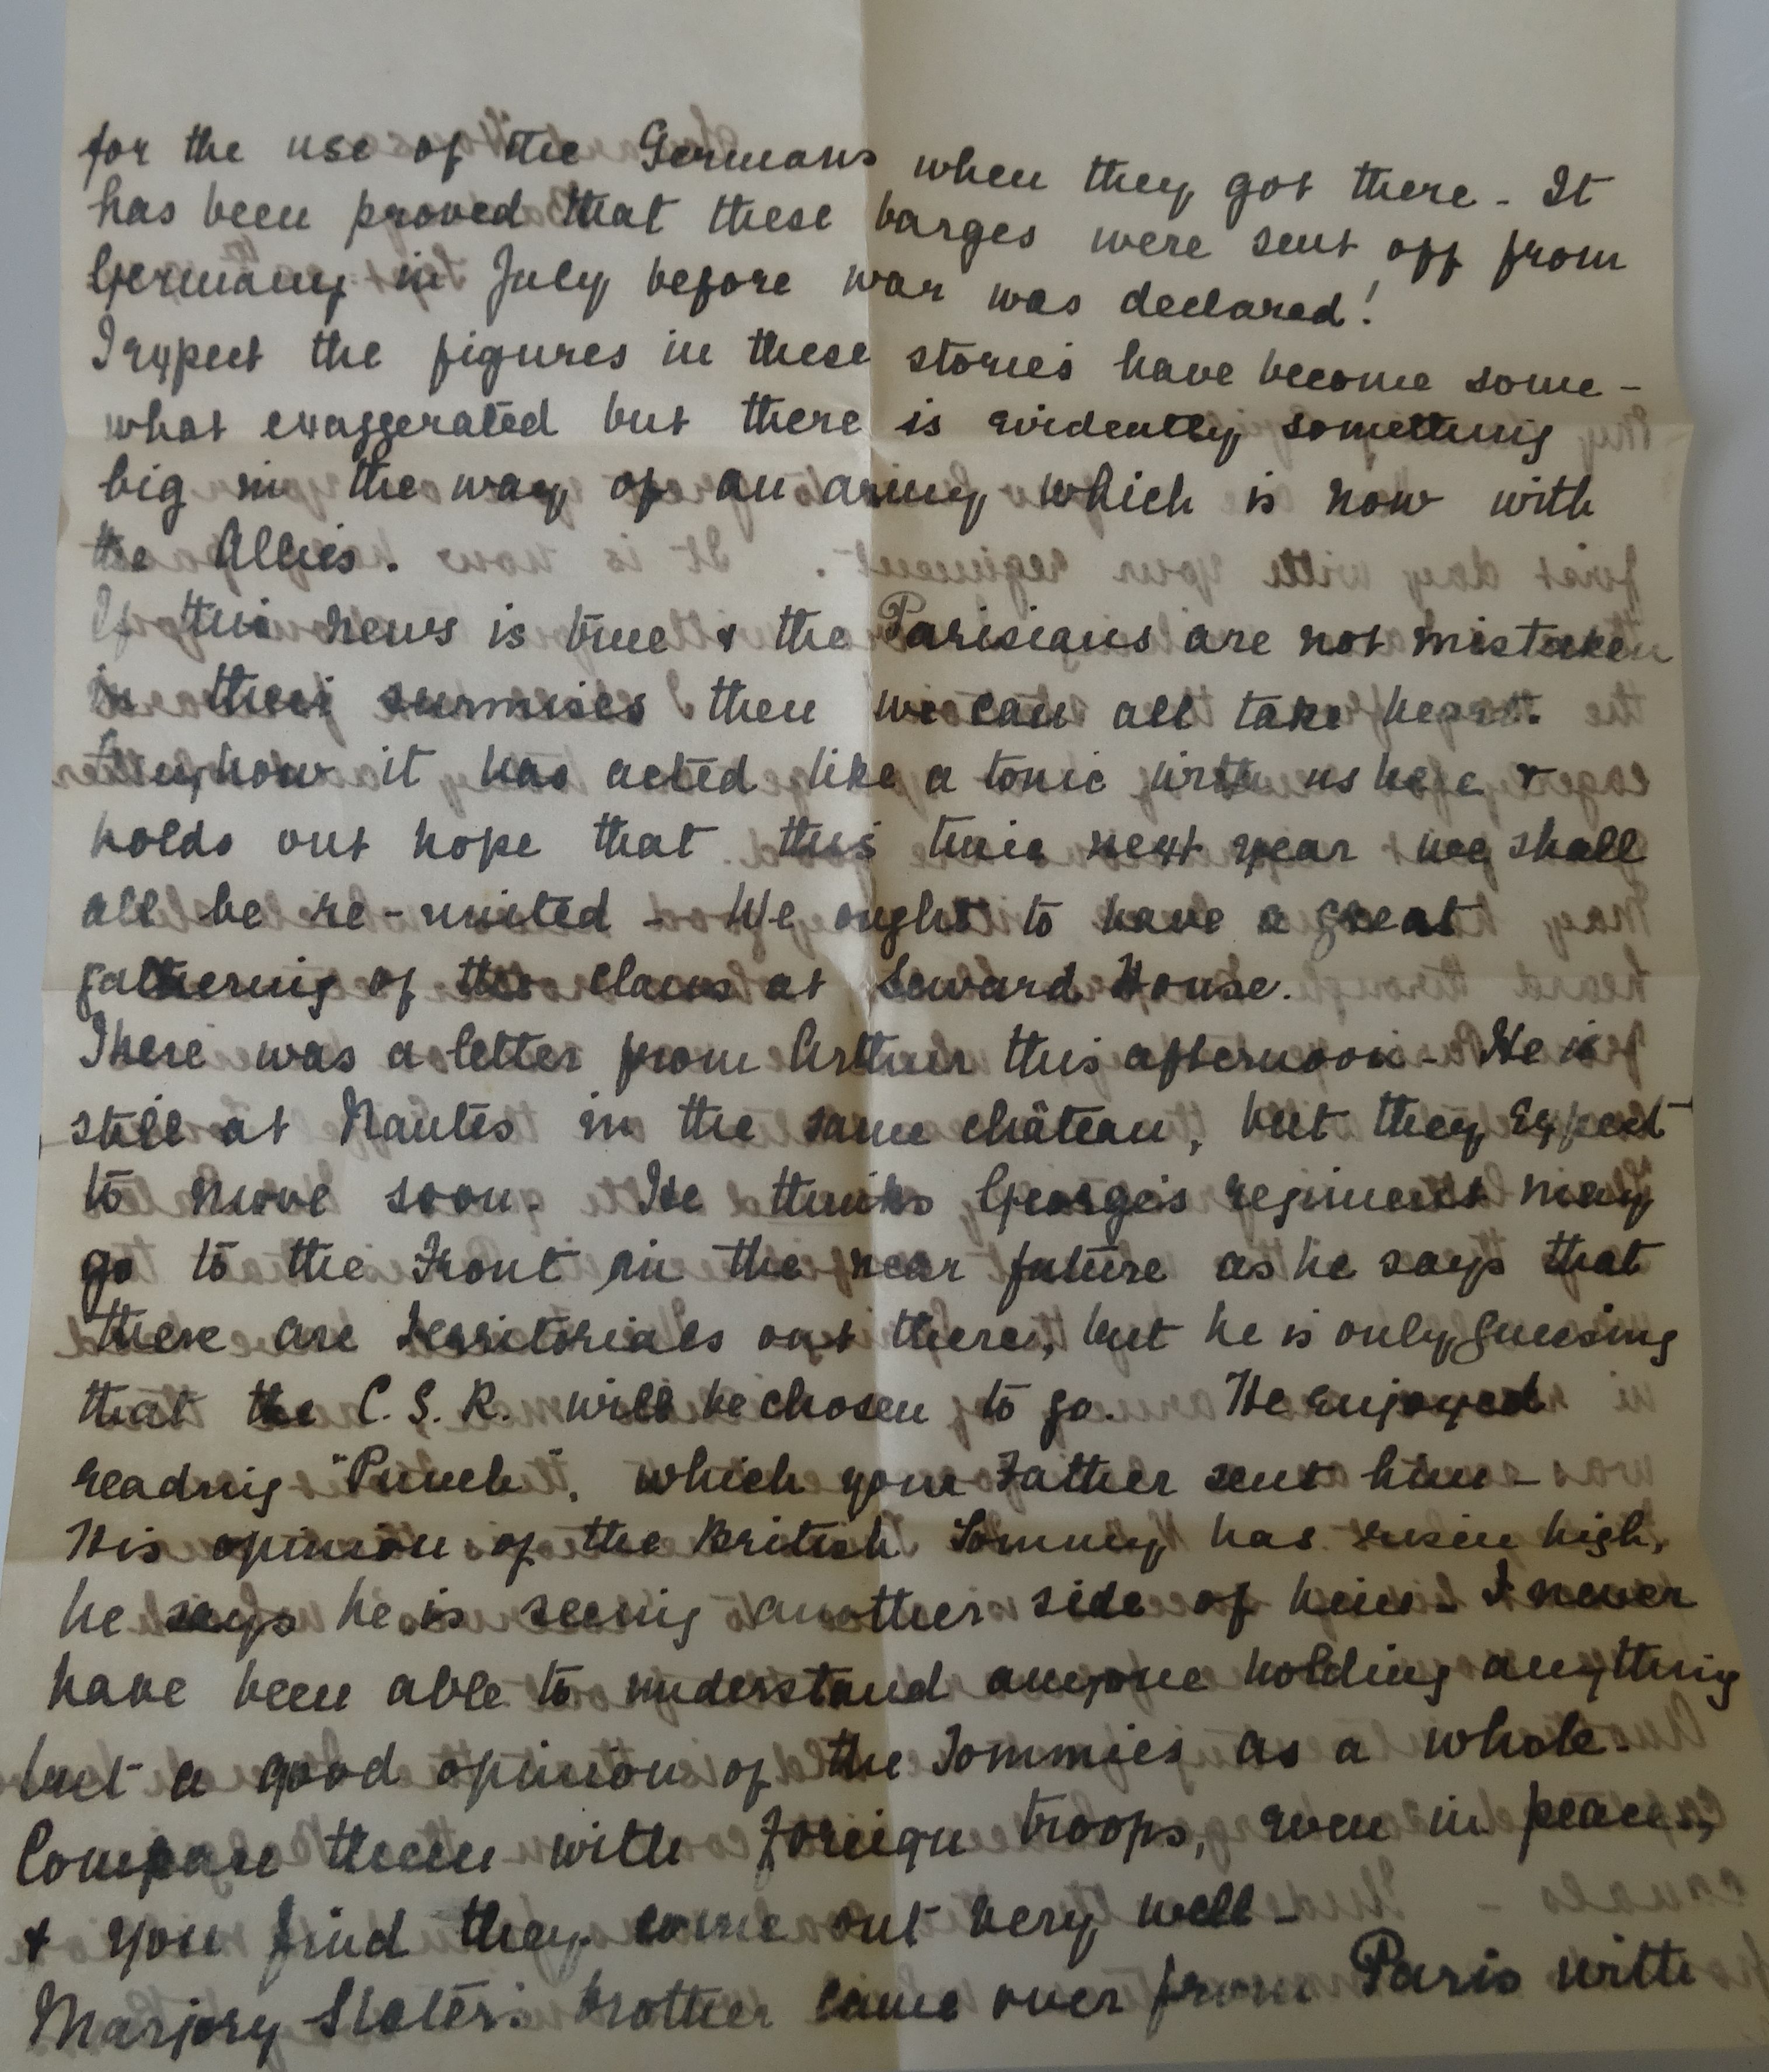 for the use of the Germans when they got there - It
has been proved that these barges were sent off from
Germany in July before war was declared!
I expect the figures in these stories have become some-
what exaggerated but there is evidently something
big in the way of an army which is now with
the Allies.
If this news is true & the Parisians are not mistaken
in their surmises then we can all take heart.
Anyhow it has acted like a tonic with us here &
holds out hope that this time next year we shall
all be re-united - We ought to have a great
gathering of the clans at Seward House.
There was a letter from Arthur this afternoon - He is
still at Nantes in the same château, but they expect
to move soon. He thinks George's regiment may
go to the Front in the near future as he says that
there are Territorials out there, but he is only guessing
that the C. S. R. will be chosen to go. He enjoyed
reading "Punch", which your Father sent him -
His opinion of the British Tommy has risen high,
he says he is seeing another side of him - I never
have been able to understand anyone holding anything
but a good opinion of the Tommies as a whole -
Compare them with Foreign troops, even in peace,
& you find they come out very well -
Marjory Slater's brother came over from Paris with